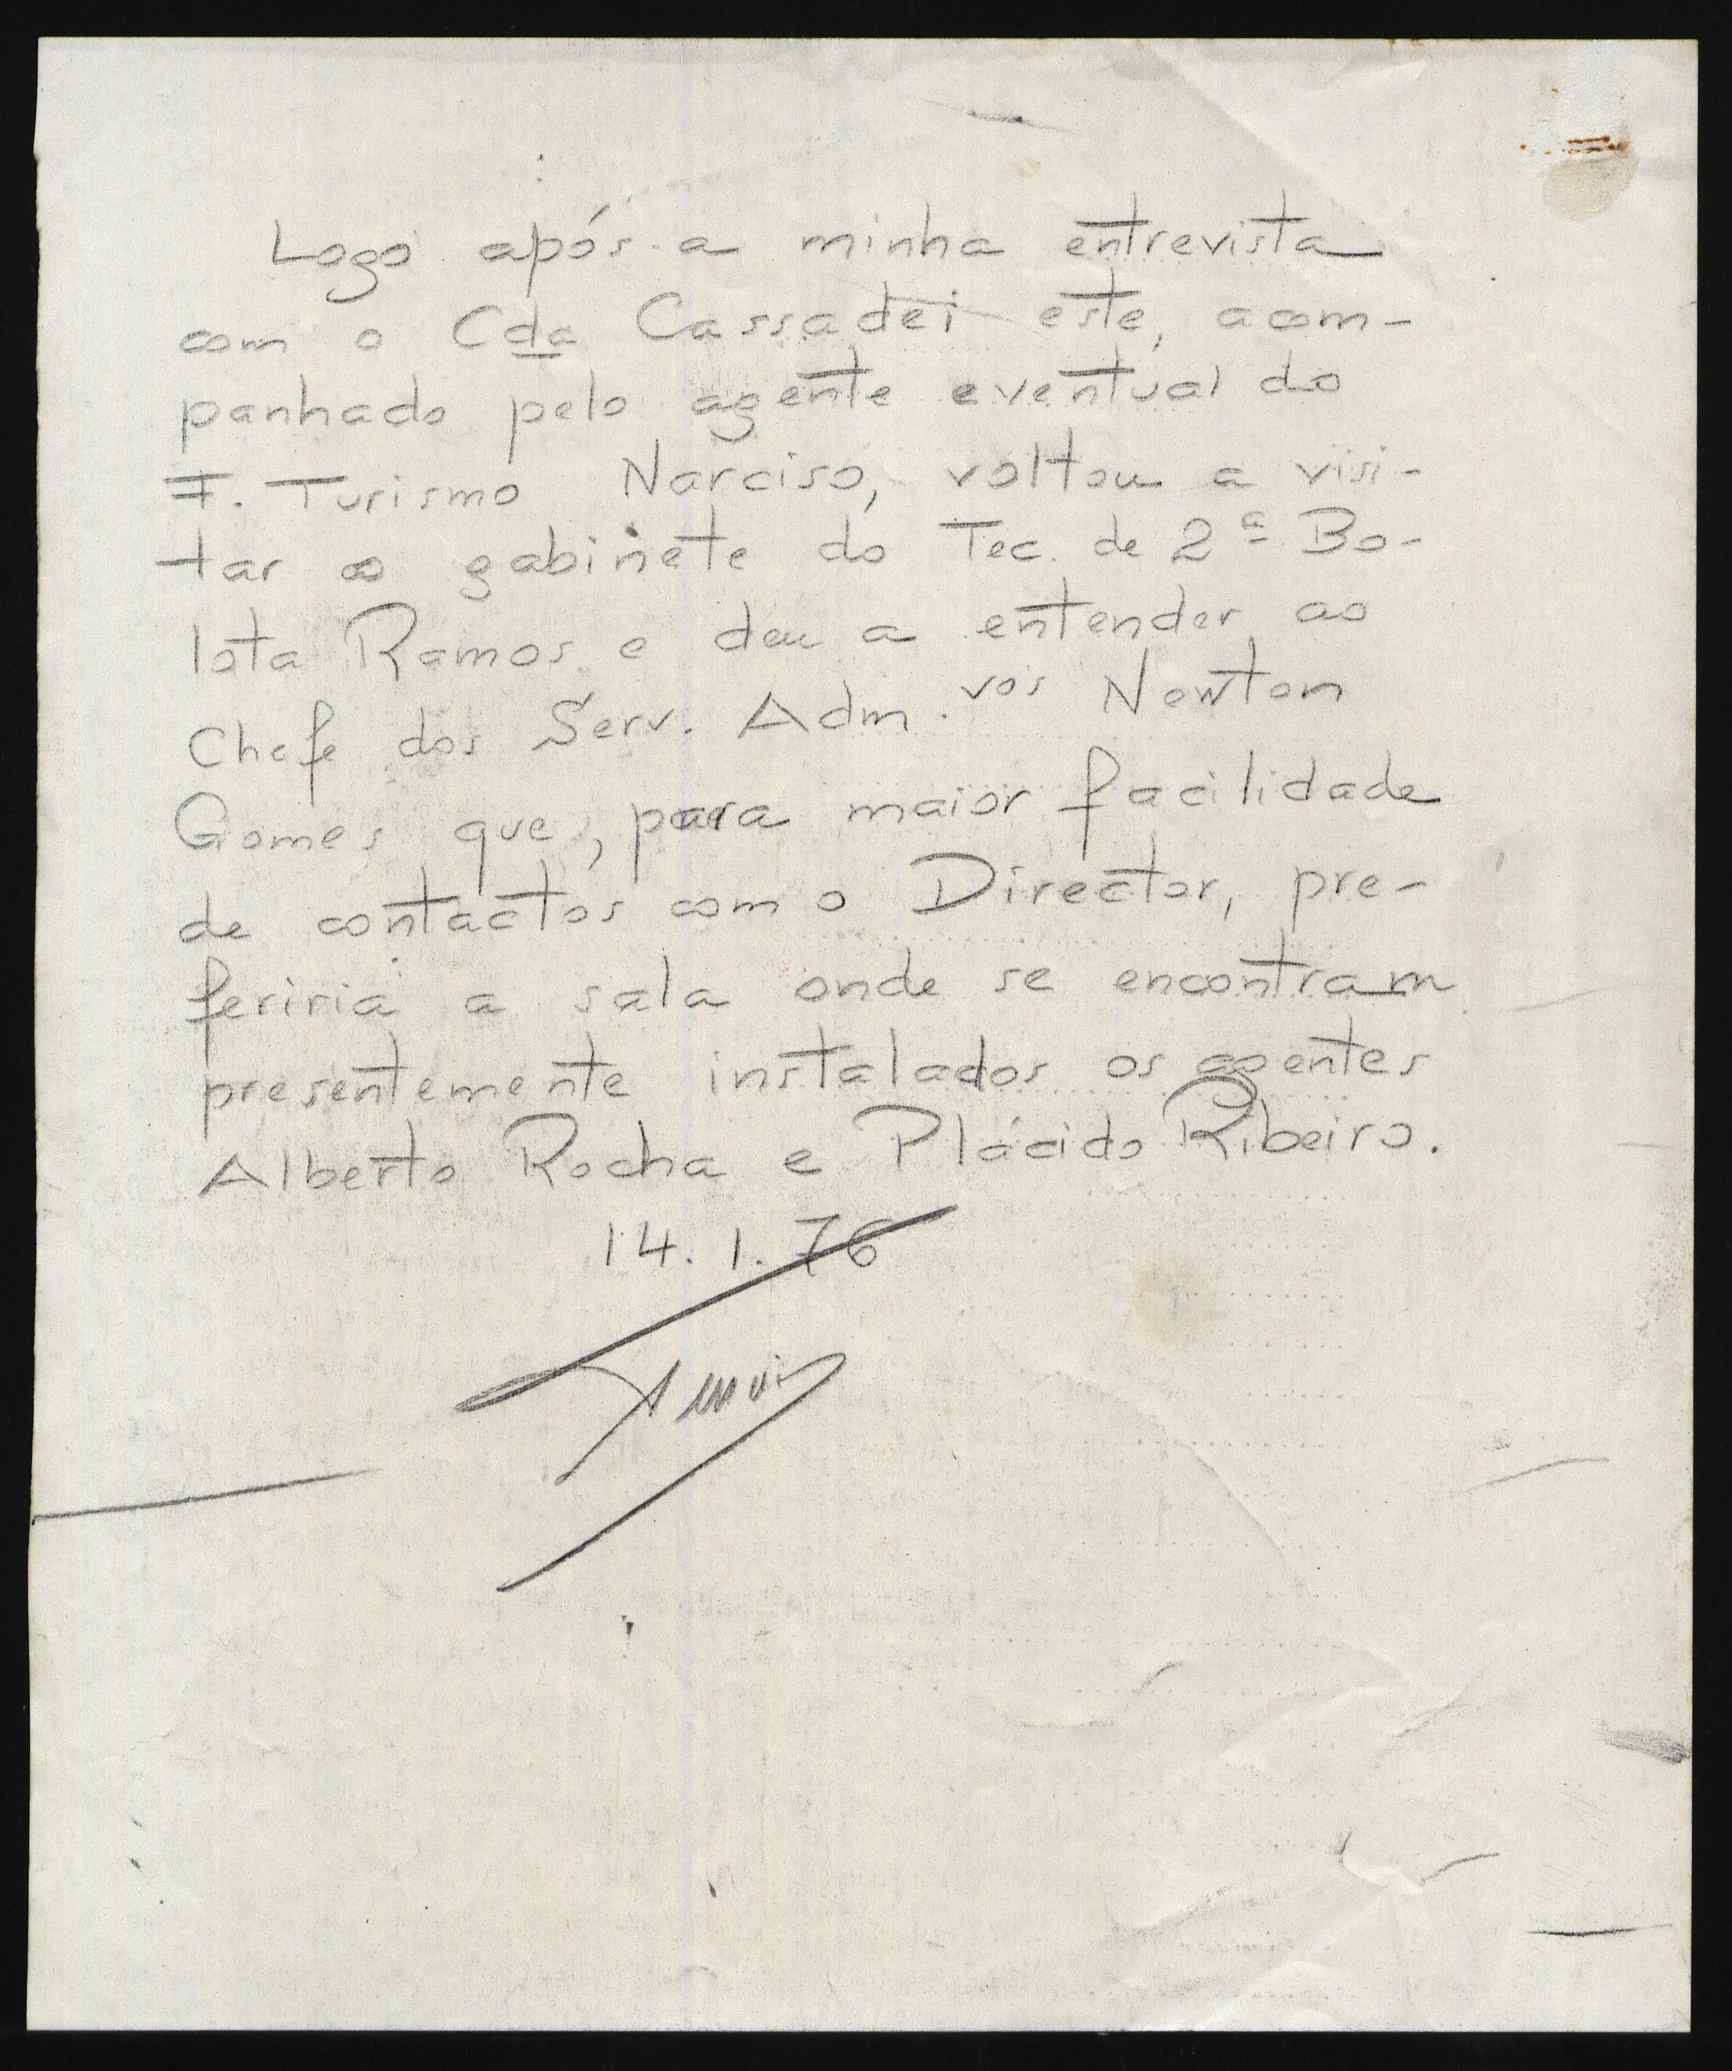 Logo após a minha entrevista
com o Cda Cassadei este, acom-
panhado pelo agente eventual do
F. Turismo Narciso, voltou a visi-
tar o gabinete do Tec. de 2ª Bo-
lota Ramos e deu a entender ao
Chefe dos Serv. Adm.vos Newton
Gomes que, para maior facilidade
de contactos com o Director, pre-
feriria a sala onde se encontram
presentemente instalados os agentes
Alberto Rocha e Plácido Ribeiro.
14.1.76